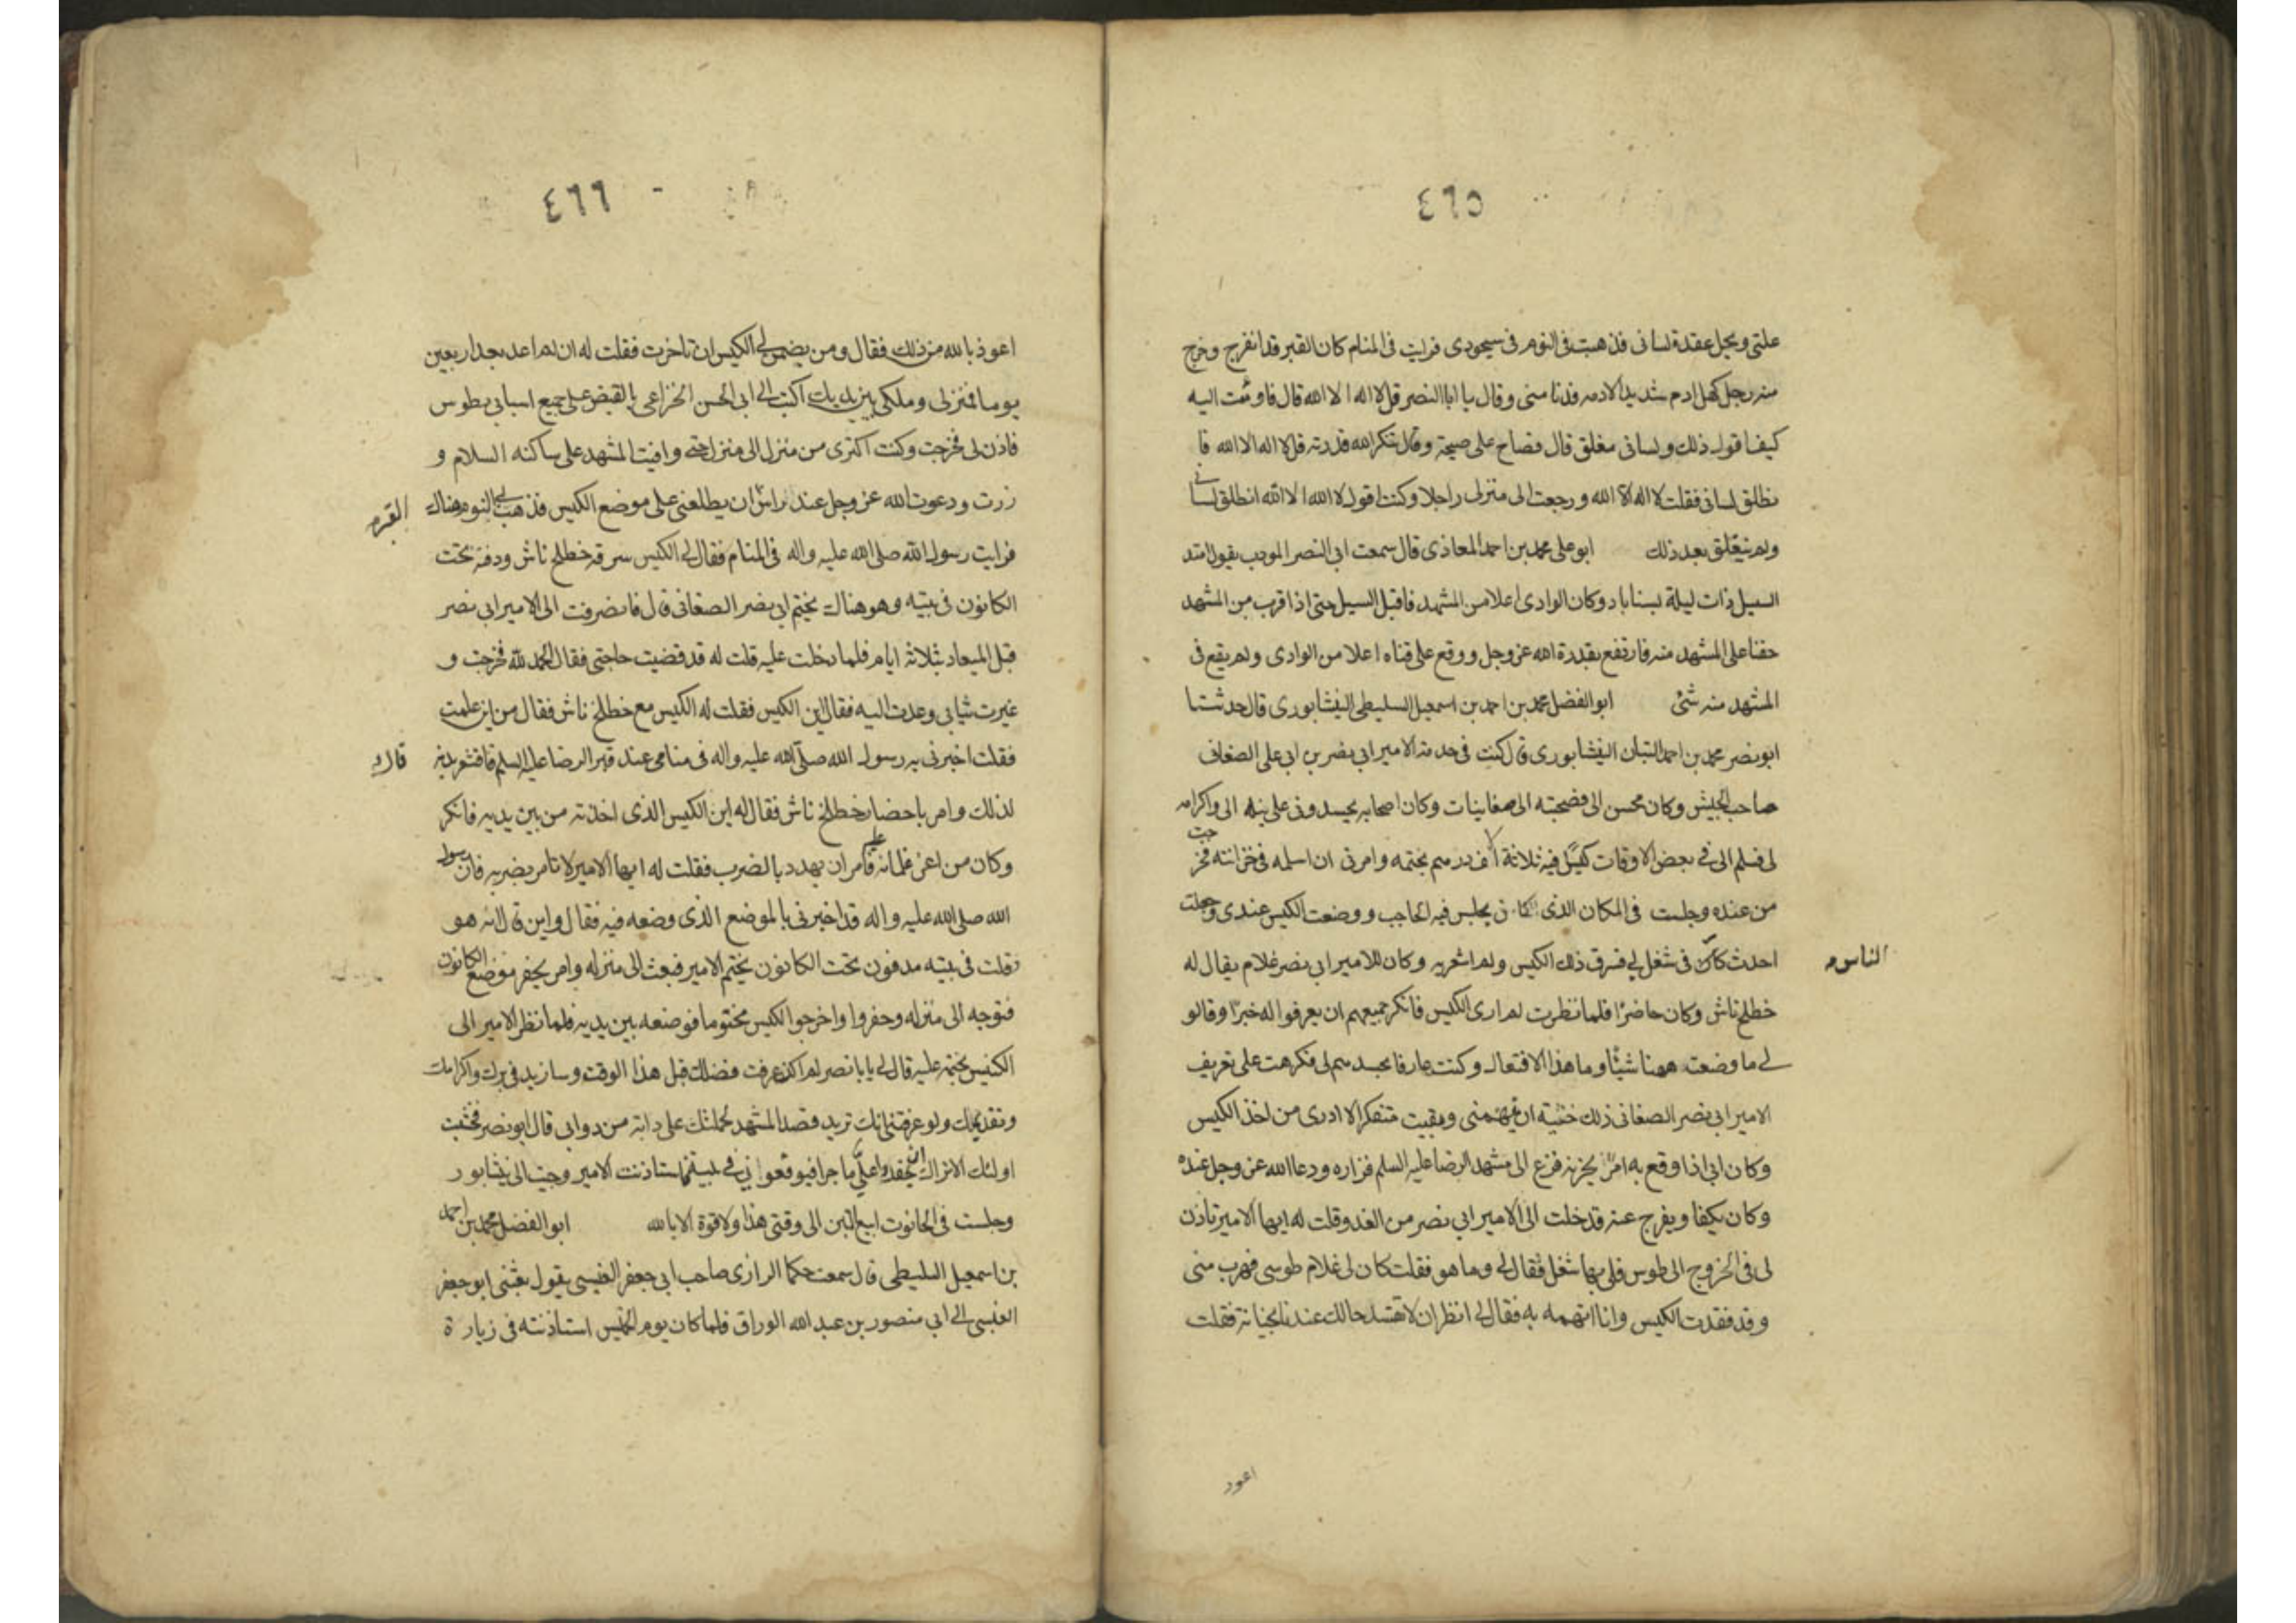 ٤٦٥
علتى ويحل عقدة لسانى فذهبت فى النوم فى سجودى فرايت فى المنام كان القبر قد انفرج وخرج
منه رجل كهل ادم شديد الادمه فدنا منى وقال يا ابا النصر قل لا اله الا الله قال فاومئت اليه
كيف اقول ذلك ولسانى مغلق قال فصاح على صيحة وقال تنكر الله قدرته قل لا اله الا الله فا
نطلق لسانى فقلت لا اله الا الله ورجعت الى منزلى راجلا وكنت اقول لا اله الا الله انطلق لسانى
ولم ينغلق بعد ذلك ابو على محمد بن احمد المعاذى قال سمعت ابى النصر المودب يقول امتد
السيل ذات ليلة بسناباد وكان الوادى اعلا من المشهد فاقبل السيل حتى اذا قرب من المشهد
خفنا على المشهد منه فارتفع بقدرة الله عز وجل ووقع على قناه اعلا من الوادى ولم يقع فى
المشهد منه شئ ابو الفضل محمد بن احمد بن اسمعيل السليطى النيشابورى قال حدثنا
ابو نصر محمد بن احمد التبان النيشابورى قال كنت فى خدمة الامير ابى نصر بن ابى على الصغانى
صاحب الجيش وكان محسن الى فصحبته الى صغانيات وكان اصحابه يحسدونى على ميله الى واكرامه
لى فسلم الى فى بعض الاوقات كيسا فيه ثلاثة آلاف درهم بختمه وامرنى ان اسلمه فى خزانته فخرجت
من عنده وجلست فى المكان الذى كان يجلس فيه الحاجب ووضعت الكيس عندى وجعلت
احدث الناس فى شغل لى فسرق ذلك الكيس ولم اشعر به وكان للامير ابى نصر غلام يقال له
خطلخ تاش وكان حاضرا فلما نظرت لم ارى الكيس فانكر جميعهم ان يعرفوا له خبرا وقالو
لى ما وضعت ههنا شيئا وما هذا الافتعال وكنت عارفا بحسدهم لى فكرهت على تعريف
الامير ابى نصر الصغانى ذلك خشية ان يتهمنى وبقيت متفكرا لا ادرى من اخذ الكيس
وكان ابى اذا وقع به امر يحزنه فزع الى مشهد الرضا عليه السلم فزاره ودعا الله عز وجل عنده
وكان يكفا ويفرج عنه قدخلت الى الامير ابى نصر من الغد وقلت له ايها الامير تاذن
لى فى الخروج الى طوس فلى بها شغل فقال لى وما هو فقلت كان لى غلام طوسى فهرب منى
وقد فقدت الكيس وانا اتهمه به فقال لى انظر ان لا تفسد حالك عندنا بخيانة فقلت
اعوذ
٤٦٦
اعوذ بالله من ذلك فقال ومن يضمن لى الكيس ان تاخرت فقلت له ان لم اعد بعد اربعين
يوما فمنزلى وملكى بين يديك اكتب الى ابى الحسن الخزاعى بالقبض على جميع اسبابى بطوس
فاذن لى فخرجت وكنت اكترى من منزل الى منزل حتى وافيت المشهد على ساكنه السلام و
زرت ودعوت الله عز وجل عند راس القبر ان يطلعنى على موضع الكيس فذهب لى النوم هناك
فرايت رسول الله صلى الله عليه واله فى المنام فقال لى الكيس سرقه خطلخ تاش ودفنه تحت
الكانون فى بيته وهو هناك بختم ابى نصر الصغانى قال فانصرفت الى الامير ابى نصر
قبل الميعاد بثلاثة ايام فلما دخلت عليه قلت له قد قضيت حاجتى فقال الحمد لله فخرجت و
غيرت ثيابى وعدت اليه فقال اين الكيس فقلت له الكيس مع خطلخ تاش فقال من اين علمت
فقلت اخبرنى به رسول الله صلى الله عليه واله فى منامى عند قبر الرضا عليه السلم قال فاقشعر بدنه
لذلك وامر باحضار خطلخ تاش فقال له اين الكيس الذى اخذته من بين يديه فانكر
وكان من اعز غلمانه فامر ان يهدد بالضرب فقلت له ايها الامير لا تامر بضربه فان رسول
الله صلى الله عليه واله قد اخبرنى بالموضع الذى وضعه فيه فقال واين قال انه هو
فقلت فى بيته مدفون تحت الكانون بختم الامير فبعث الى منزله وامر بحفر موضع الكانون
فتوجه الى منزله وحفروا واخرجوا الكيس مختوما فوضعه بين يديه فلما نظر الامير الى
الكيس بختمه عليه قال لى يا با نصر لم اكن عرفت فضلك قبل هذا الوقت وسازيد فى برك واكرامك
وتقديمك ولو عرفتنى انك تريد قصد المشهد لحملتك على دابة من دوابى قال ابو نصر فخشيت
اولئك الاتراك ان يحقدوا على ما جرا فيوقعوا نى فى بلية فاستاذنت الامير وجئت الى نيشابور
وجلست فى الحانوت ابيع التبن الى وقتى هذا ولا قوة الا بالله ابو الفضل محمد بن احمد
بن اسمعيل السليطى قال سمعت حكما الرازى صاحب ابى جعفر العبسى يقول بعثنى ابو جعفر
العبسى الى ابى منصور بن عبد الله الوراق فلما كان يوم الخميس استاذنته فى زيارة